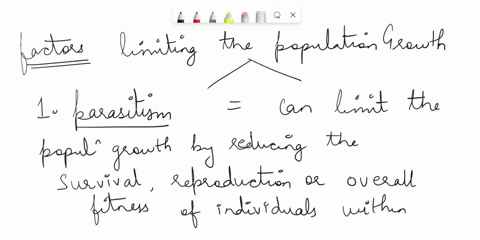 factors limiting the population Growth
1. parasitism = can limit the
popul^n growth by reducing the
survival, reproduction or overall
fitness of individuals within